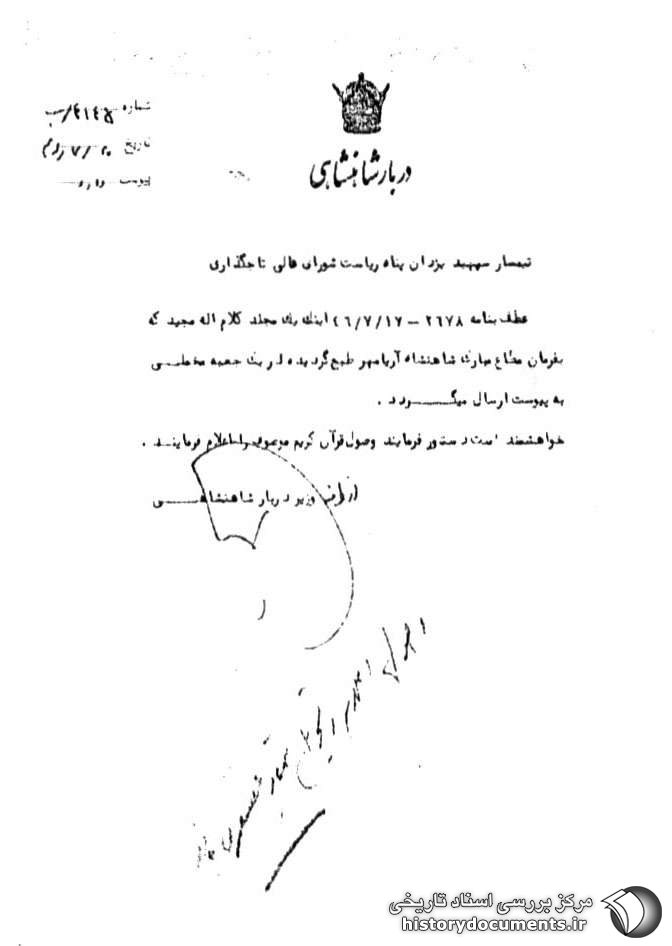 دربار شاهنشاهی
شماره ۴۱۴۵/
تاریخ
پیوست دارد
تیمسار سپهبد یزدان پناه ریاست شورای عالی تاجگذاری
عطف بنامه ۲۶۷۸ – ۴۶/۷/۱۷ اینك یك مجلد کلام اله مجید که
بفرمان مطاع مبارك شاهنشاه آریامهر طبع گردیده در یك جعبه مخملی
به پیوست ارسال میگردد .
خواهشمند است دستور فرمایند وصول قرآن کریم موصوف را اعلام فرمایند .
از طرف وزیر دربار شاهنشاهی
مرکز بررسی اسناد تاریخی
historydocuments.ir